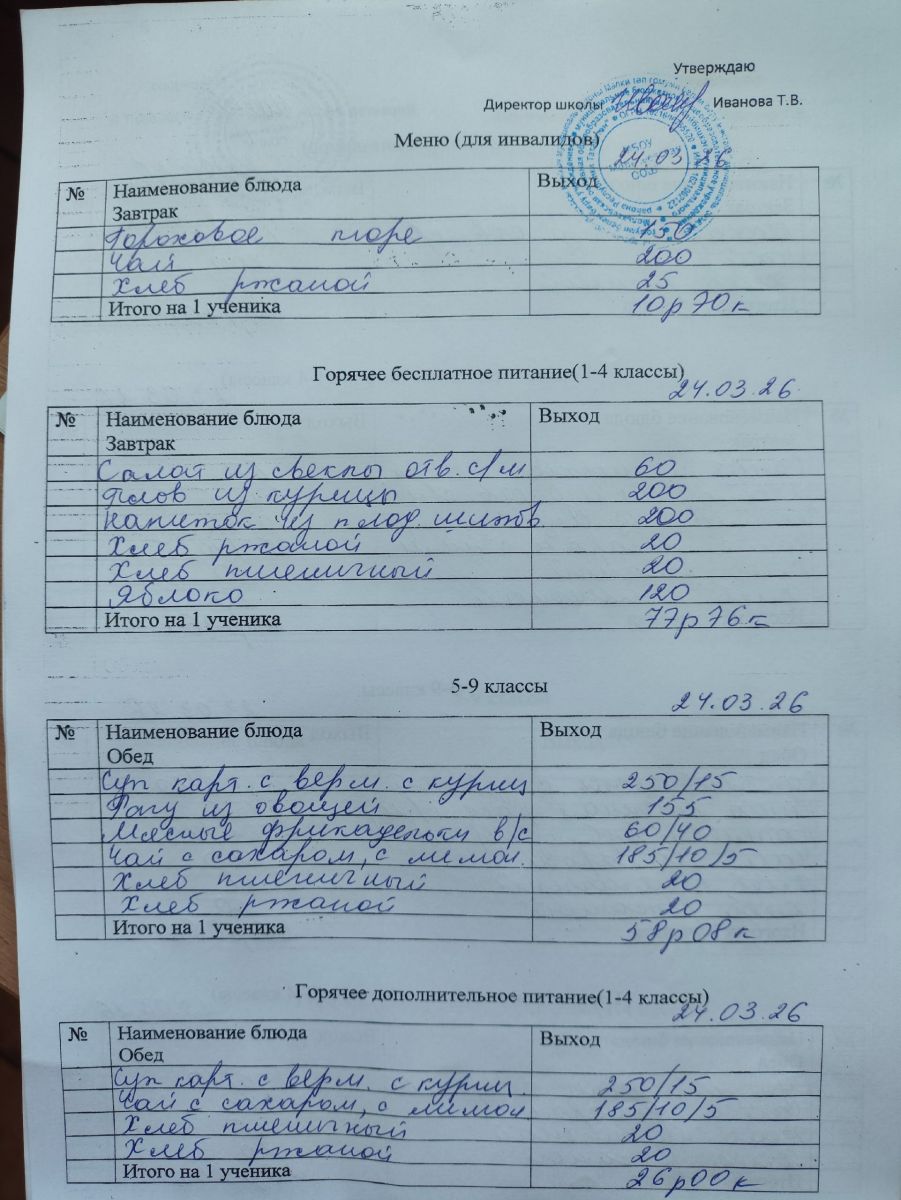 Утверждаю
Директор школы Иванова Т.В.
Меню (для инвалидов) 24.03 26
№ Наименование блюда Выход
Завтрак
Гороховое пюре 150
Чай 200
Хлеб ржаной 25
Итого на 1 ученика 10р70к
Горячее бесплатное питание(1-4 классы)
24.03.26
№ Наименование блюда Выход
Завтрак
Салат из свеклы отв. с/м 60
Плов из курицы 200
Напиток из плод. шипов. 200
Хлеб ржаной 20
Хлеб пшеничный 20
Яблоко 120
Итого на 1 ученика 77р76к
5-9 классы
24.03.26
№ Наименование блюда Выход
Обед
Суп карт. с верм. с куриц 250/15
Рагу из овощей 155
Мясные фрикадельки в/с 60/40
Чай с сахаром, с лимон. 185/10/5
Хлеб пшеничный 20
Хлеб ржаной 20
Итого на 1 ученика 58р08к
Горячее дополнительное питание(1-4 классы)
24.03.26
№ Наименование блюда Выход
Обед
Суп карт. с верм. с куриц. 250/15
Чай с сахаром, с лимон 185/10/5
Хлеб пшеничный 20
Хлеб ржаной 20
Итого на 1 ученика 26р00к